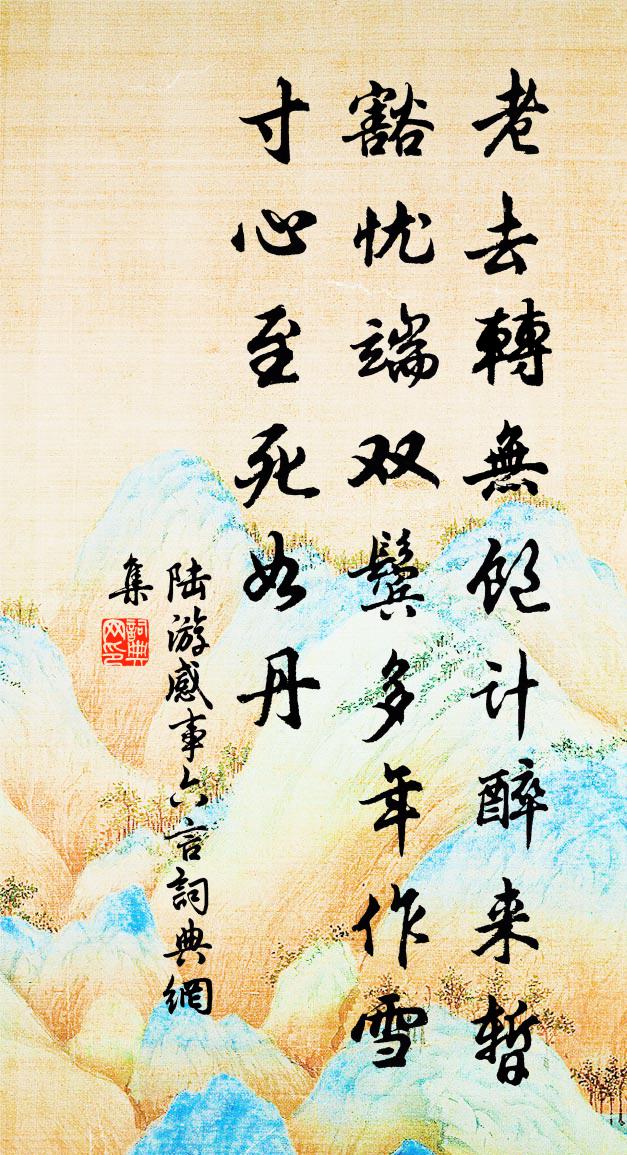 老去轉無飽计醉来暫
豁忧端双鬓多年作雪
寸心至死如丹
陆游感事六言詞典網
集
詞典
网印